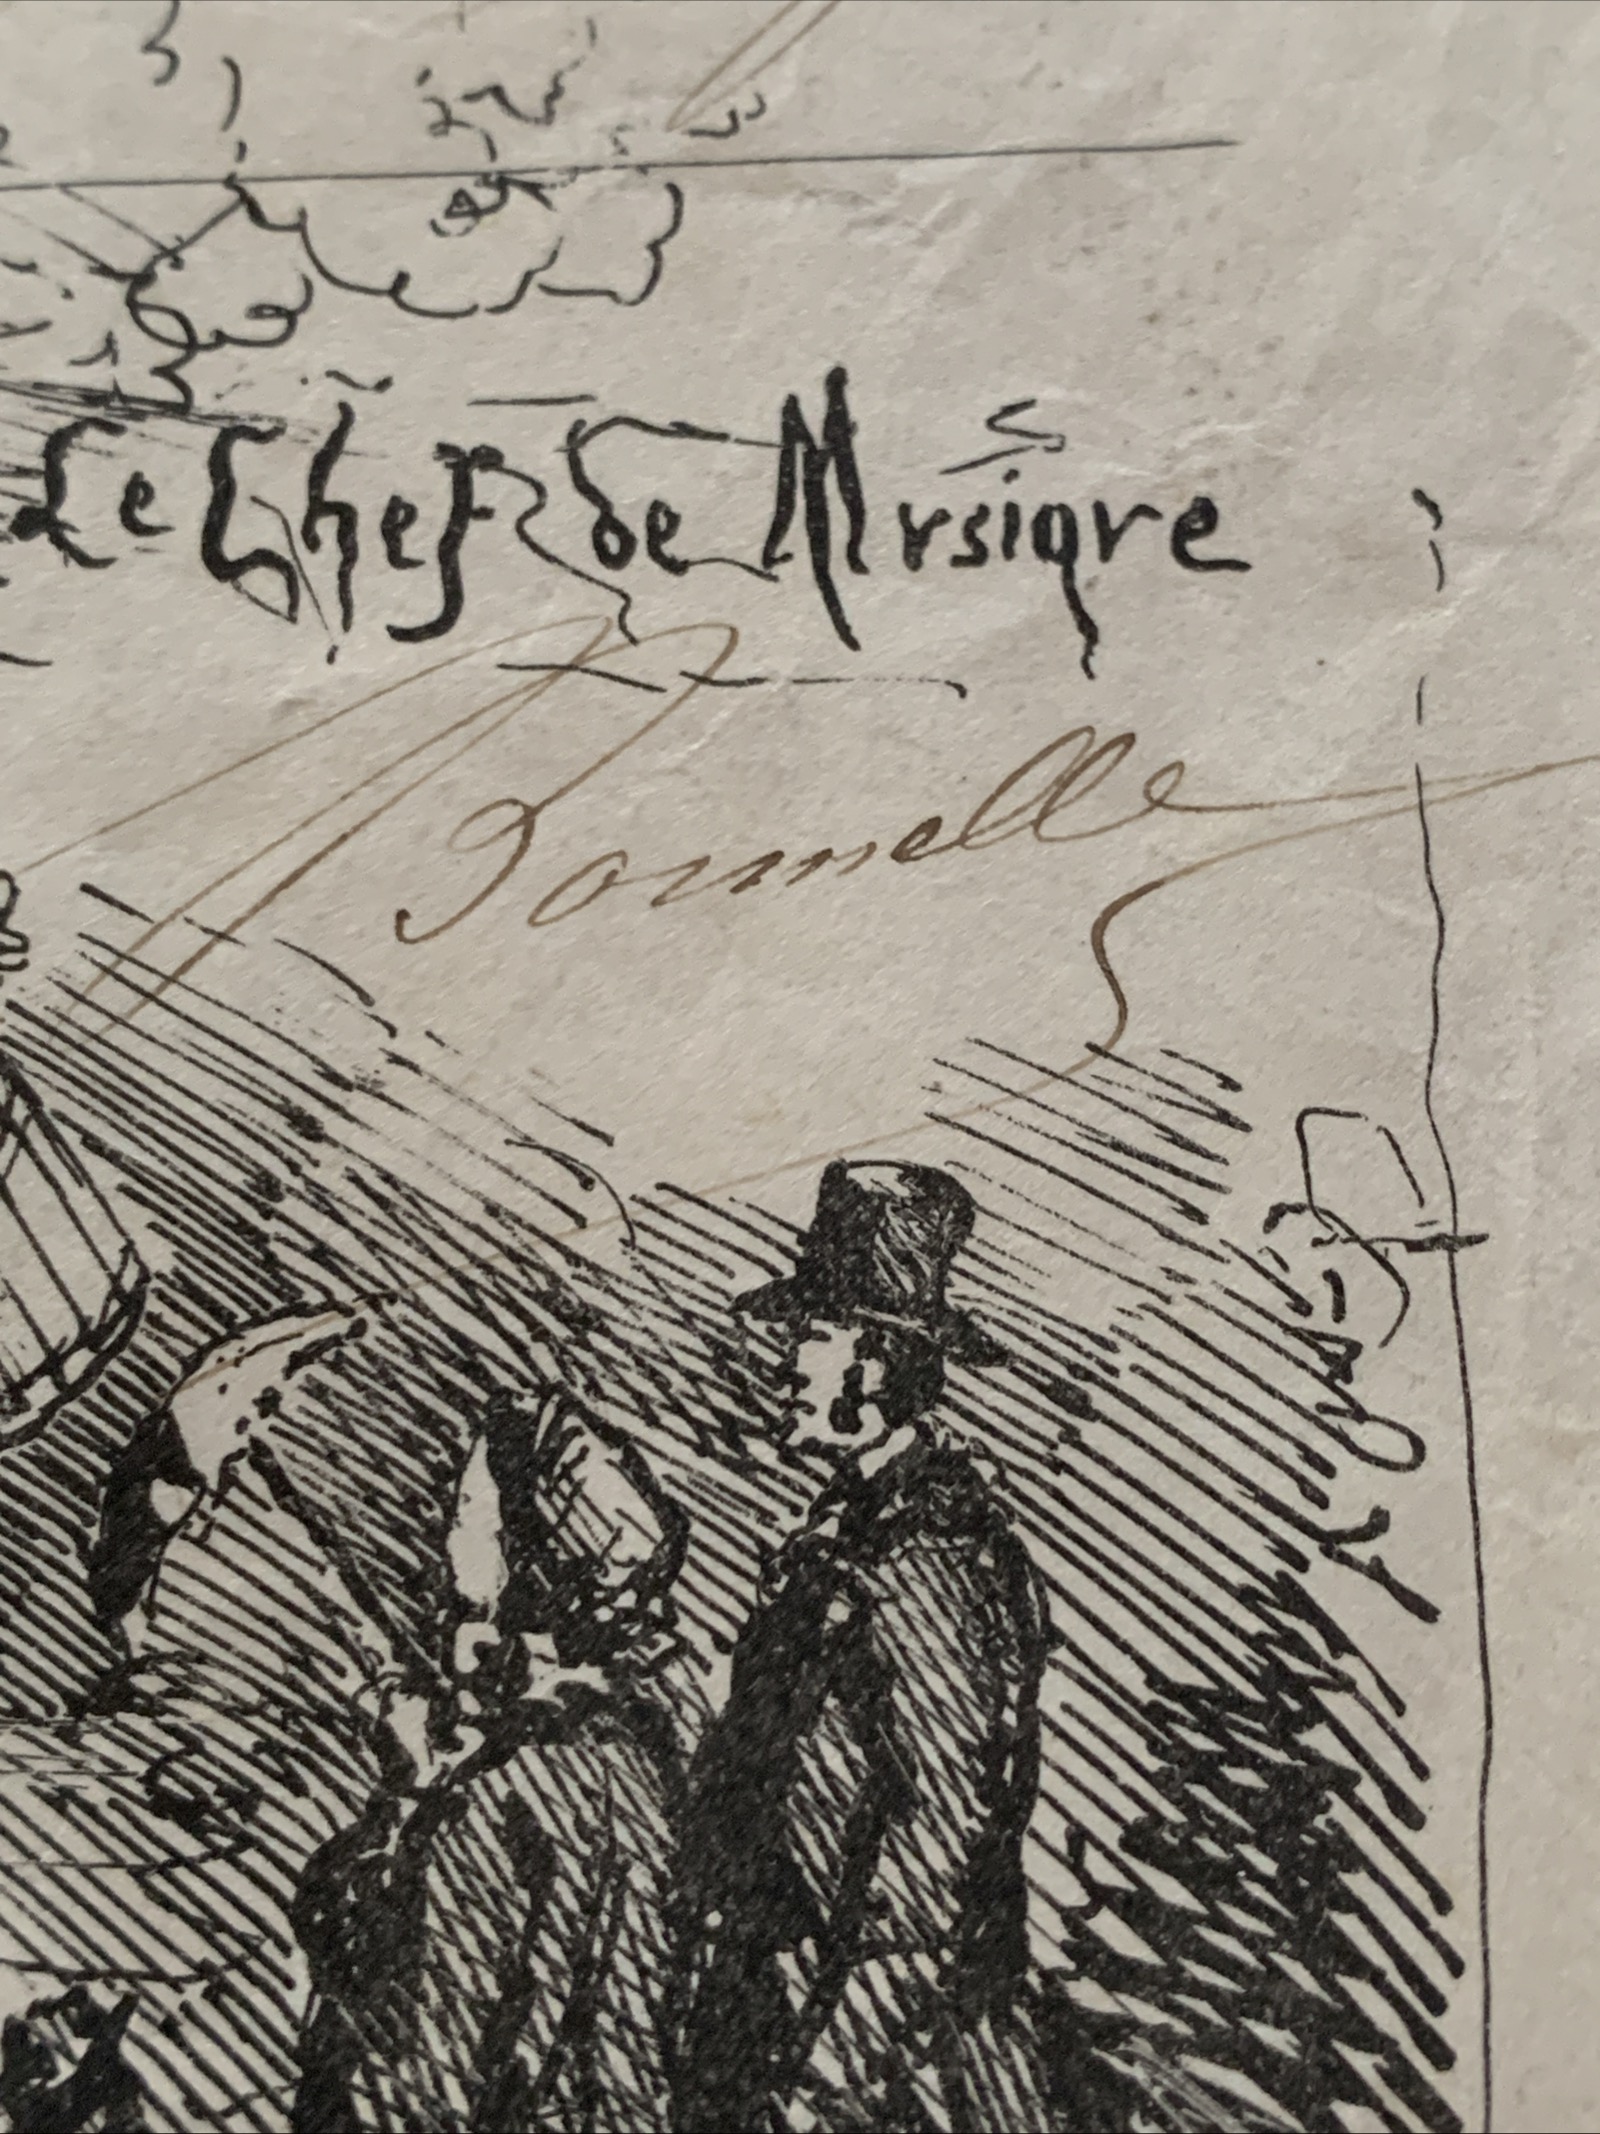 Le Chef de Mvsiqve
Bonnelle